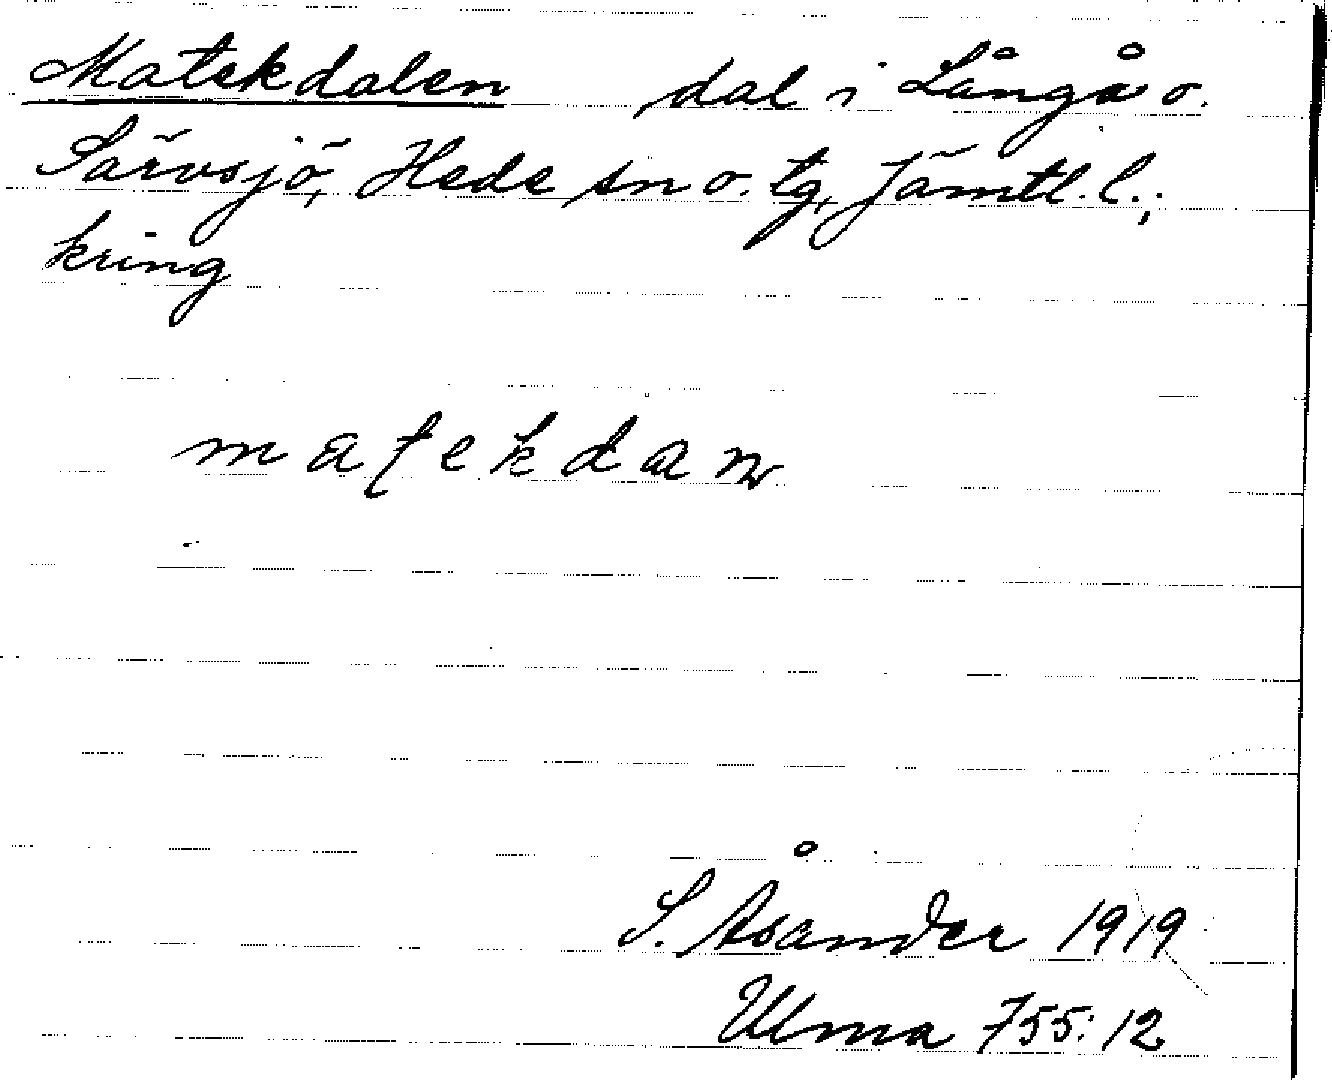 Matekdalen dal i Långå o.
Särvsjö, Hede sn o. tg, Jämtl. l.;
kring
matekdan
S. Åsander 1919
Ulma 755:12